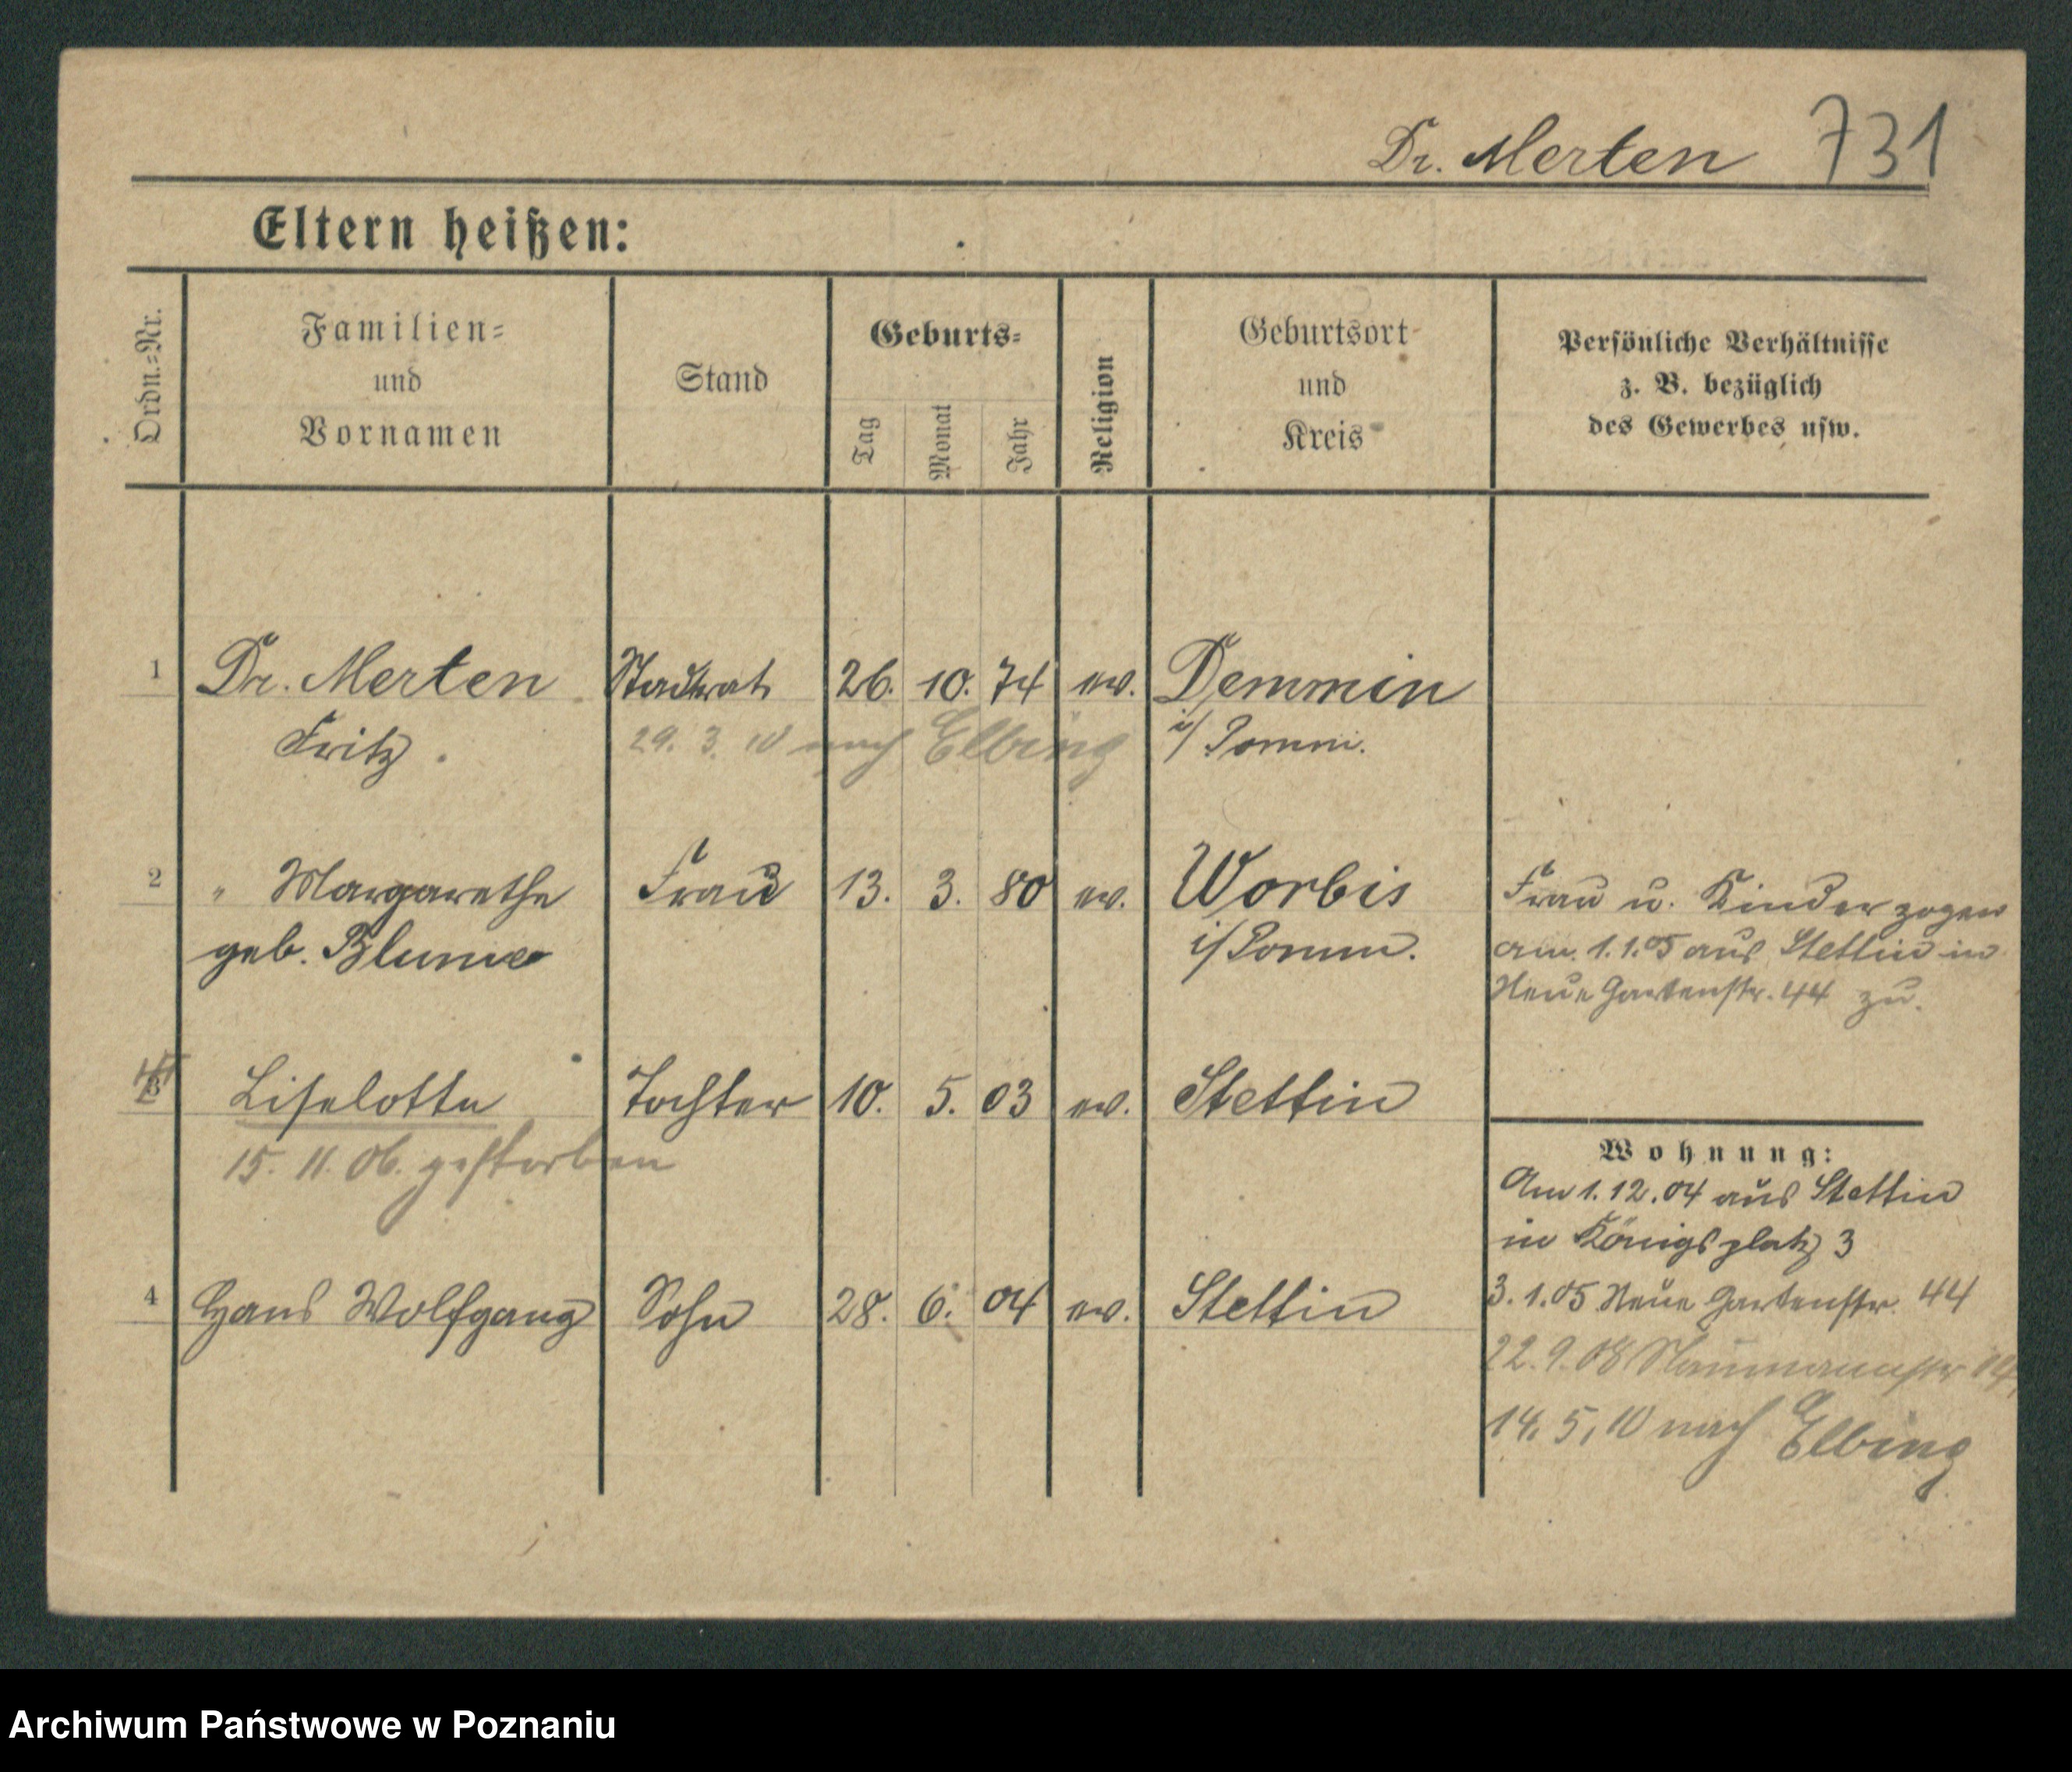 Dr. Merten 731
Eltern heißen:
Ordn.=Nr.
Familien=
und
Vornamen
Stand
Geburts=
Tag
Monat
Jahr
Religion
Geburtsort
und
Kreis
Persönliche Verhältnisse
z. B. bezüglich
des Gewerbes usw.
1 Dr. Merten Stadtrat 26. 10. 74 ev. Demmin
Fritz. 29. 3. 10 nach Elbing i/ Pomm.
2 " Margarethe Frau 13. 3. 80 ev. Worbis
geb. Blume i/ Pomm.
Frau u. Kinder zogen
am 1.1.05 aus Stettin in
Neue Gartenstr. 44 zu.
3 Liselotte Tochter 10. 5. 03 ev. Stettin
15. 11. 06. gestorben
4 Hans Wolfgang Sohn 28. 6. 04 ev. Stettin
Wohnung:
Am 1.12.04 aus Stettin
in Königsplatz 3
3.1.05 Neue Gartenstr. 44
22.9.08 Naumannstr
14.5.10 nach Elbing
Archiwum Państwowe w Poznaniu